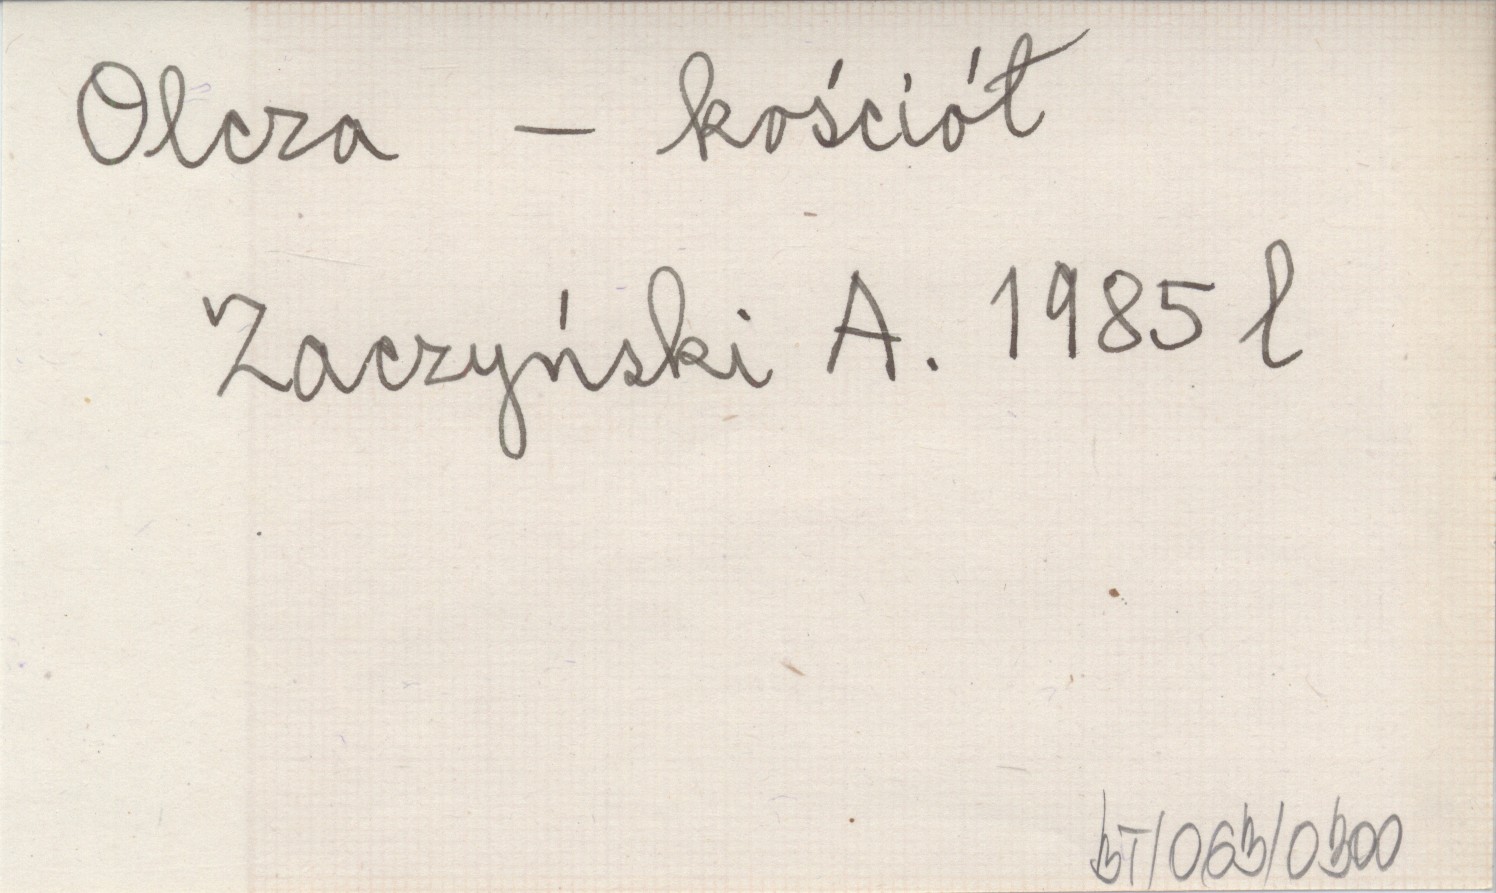 Olcza – kościół
Zaczyński A. 1985 l
BT/063/0300